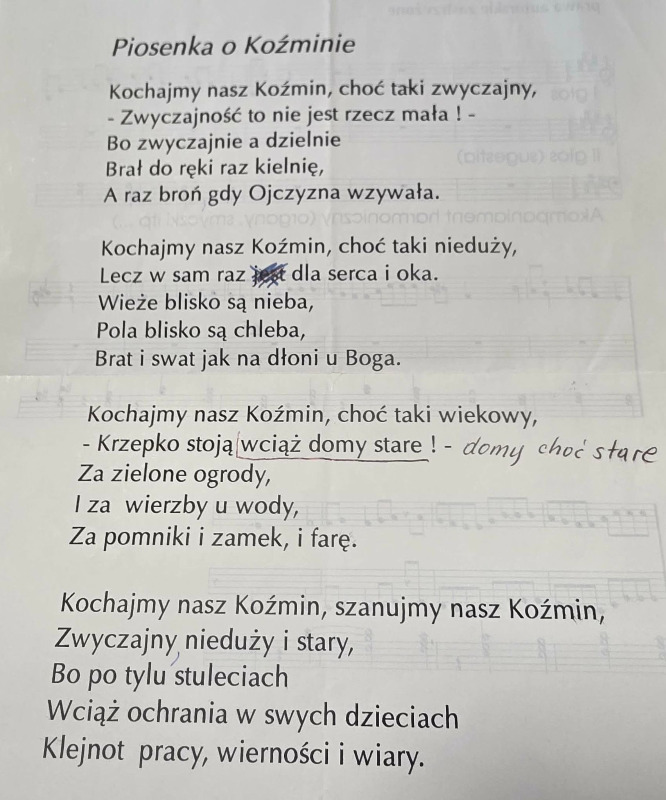 Piosenka o Koźminie
Kochajmy nasz Koźmin, choć taki zwyczajny,
- Zwyczajność to nie jest rzecz mała ! -
Bo zwyczajnie a dzielnie
Brał do ręki raz kielnię,
A raz broń gdy Ojczyzna wzywała.
Kochajmy nasz Koźmin, choć taki nieduży,
Lecz w sam raz dla serca i oka.
Wieże blisko są nieba,
Pola blisko są chleba,
Brat i swat jak na dłoni u Boga.
Kochajmy nasz Koźmin, choć taki wiekowy,
- Krzepko stoją wciąż domy stare ! - domy choć stare
Za zielone ogrody,
I za wierzby u wody,
Za pomniki i zamek, i farę.
Kochajmy nasz Koźmin, szanujmy nasz Koźmin,
Zwyczajny, nieduży i stary,
Bo po tylu stuleciach
Wciąż ochrania w swych dzieciach
Klejnot pracy, wierności i wiary.